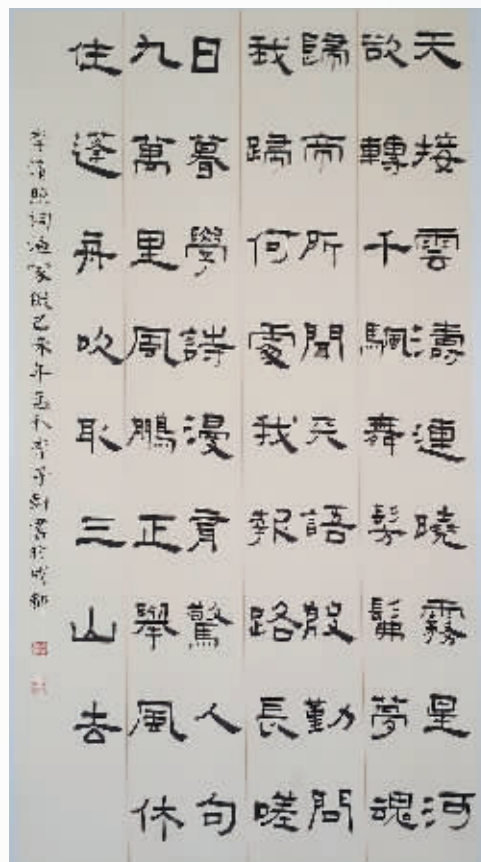 天接雲濤連曉霧星河
欲轉千颿舞髣髴夢魂
歸帝所聞天語殷勤問
我歸何處我報路長嗟
日暮學詩漫有驚人句
九萬里風鵬正舉風休
住蓬舟吹取三山去
李清照詞漁家傲乙未年孟秋李子書於成都